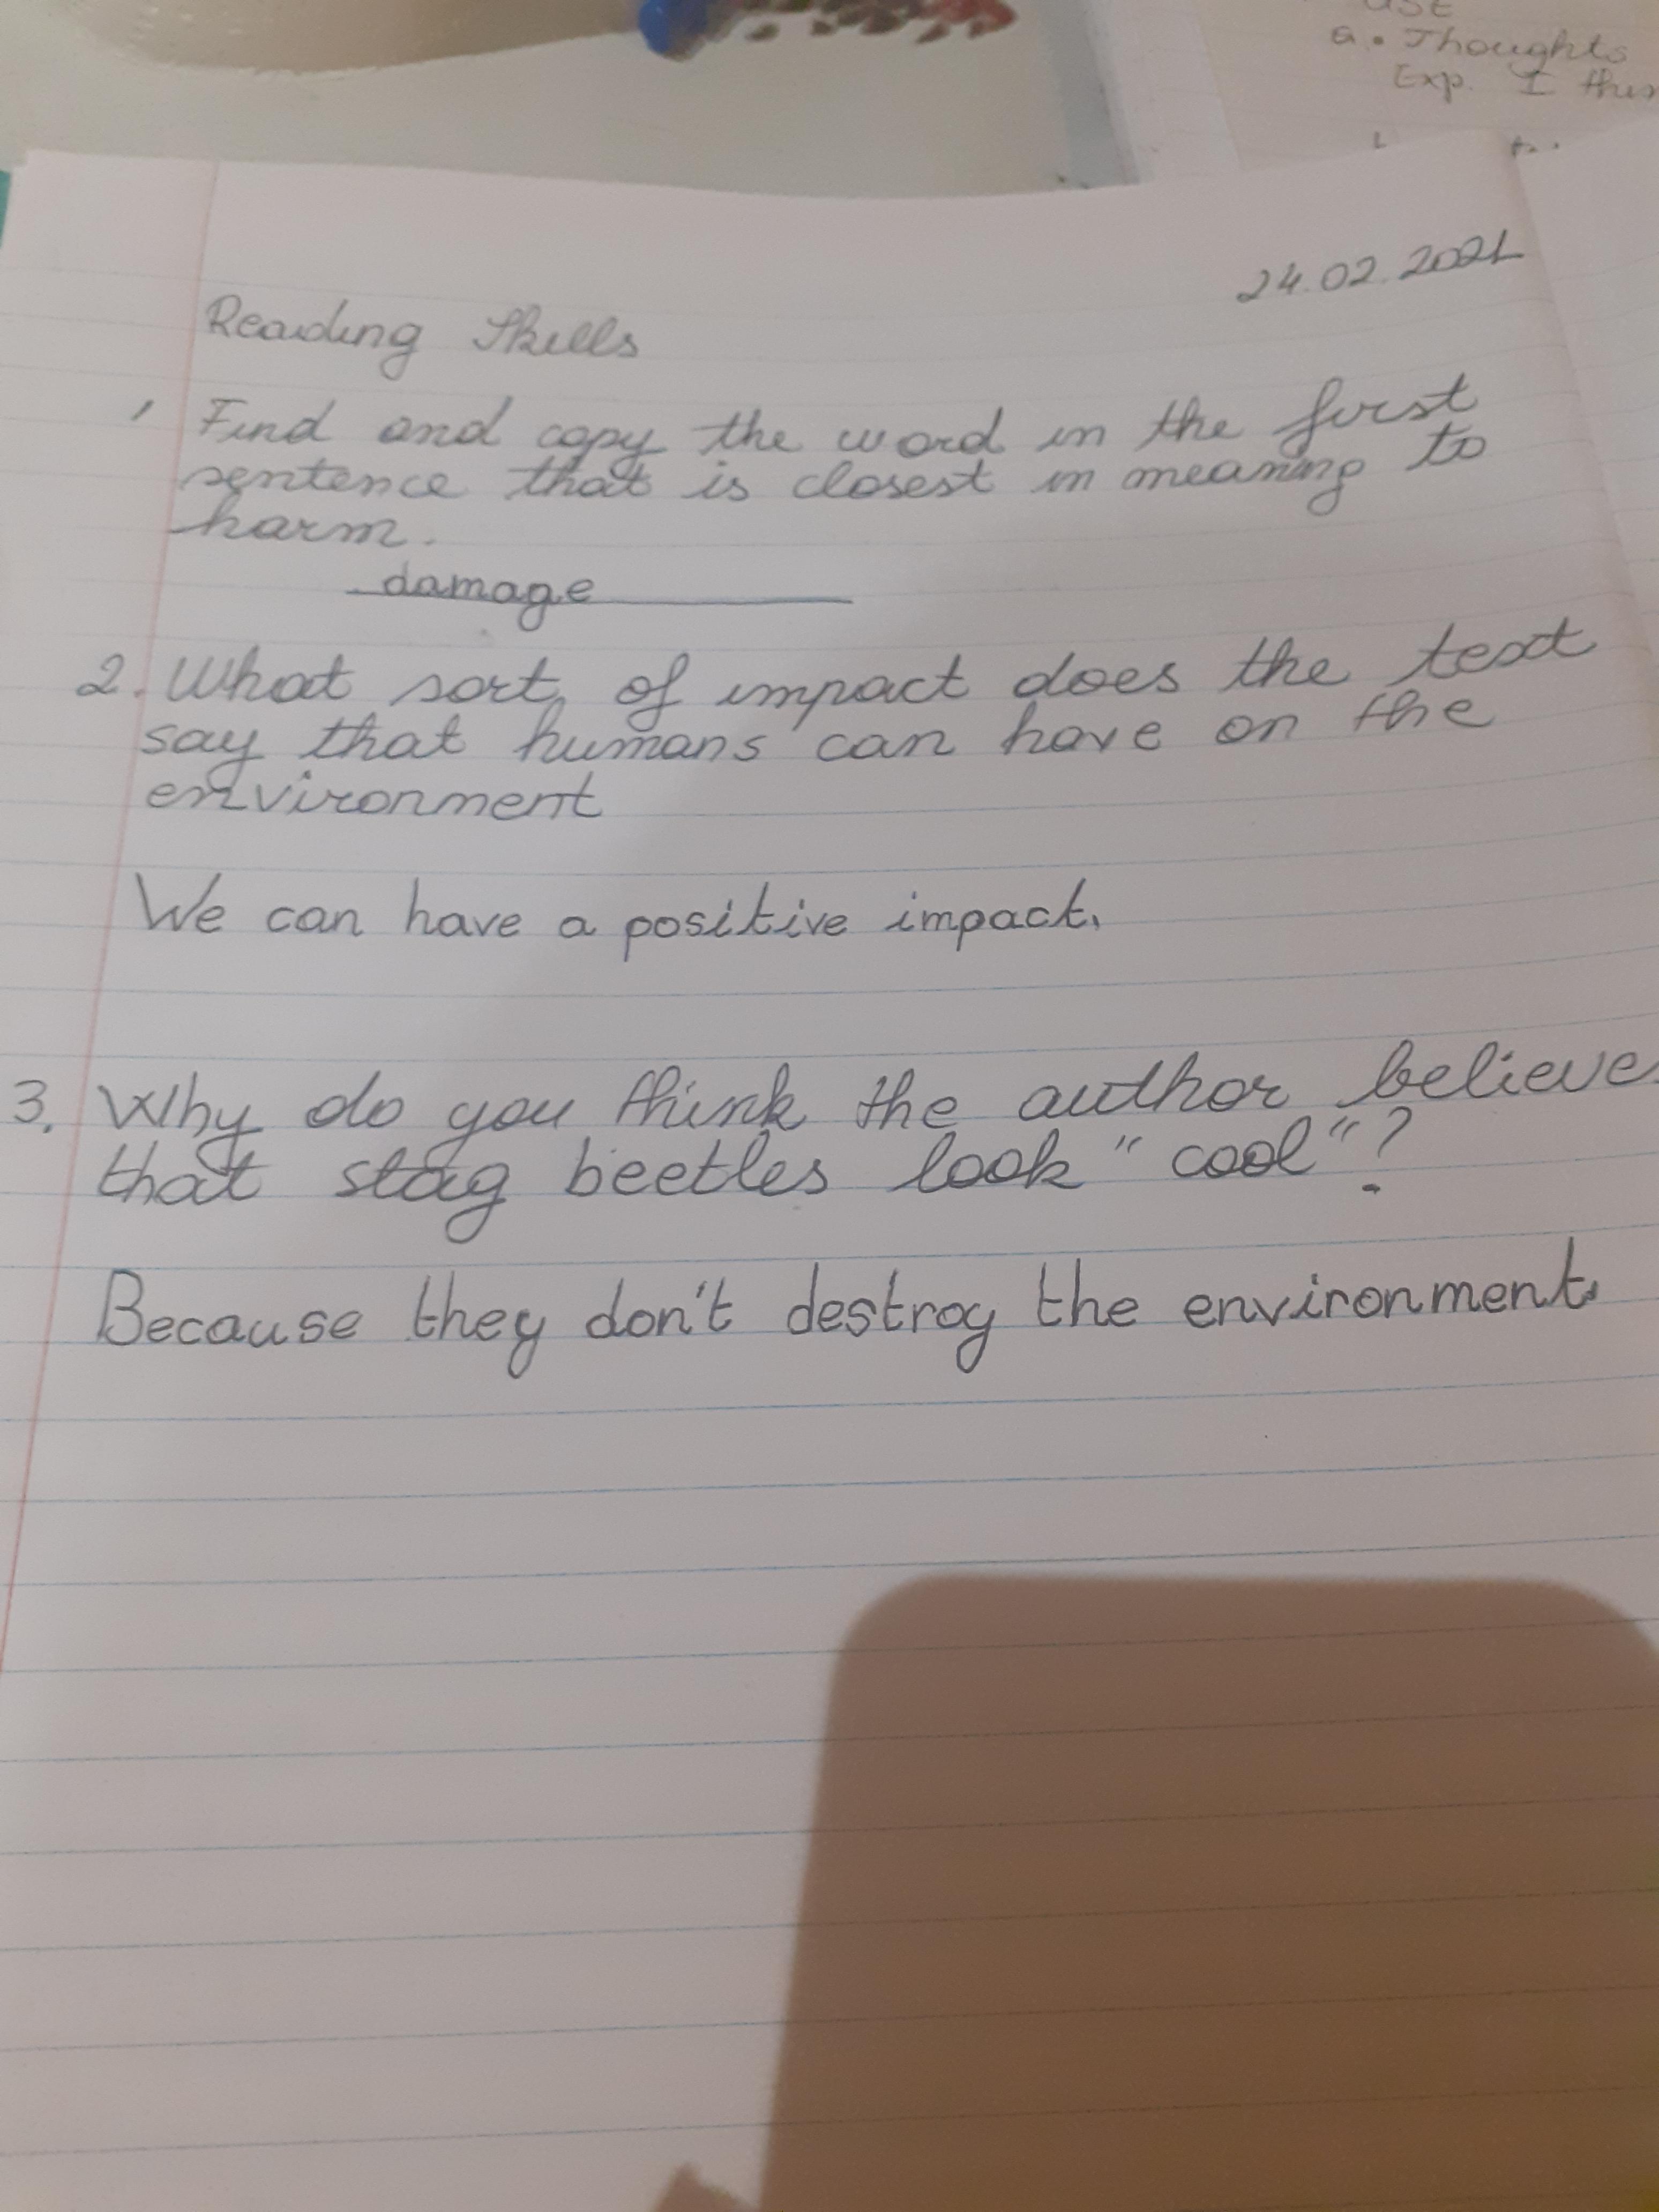 USE
a. Thoughts
Exp. I
24.02.2021
Reading Skills
1 Find and copy the word in the first
sentence that is closest in meaning to
harm.
damage
2. What sort of impact does the text
say that humans can have on the
environment
We can have a positive impact.
3. Why do you think the author believe
that stag beetles look "cool"?
Because they don't destroy the environment.